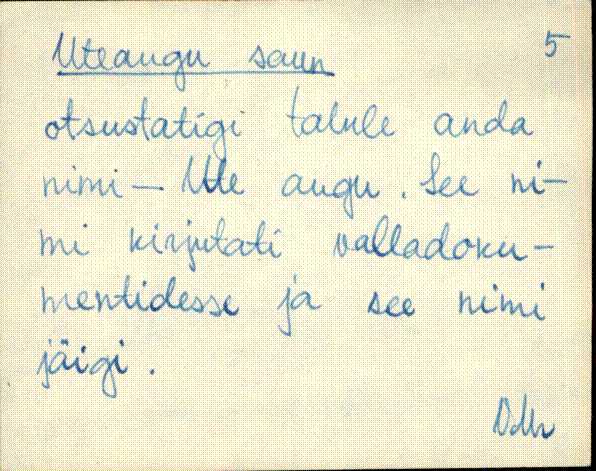 Uteaugu saun 5
otsustatigi talule anda
nimi — Ute augu. See ni-
mi kirjutati valladoku-
mentidesse ja see nimi
jäigi.